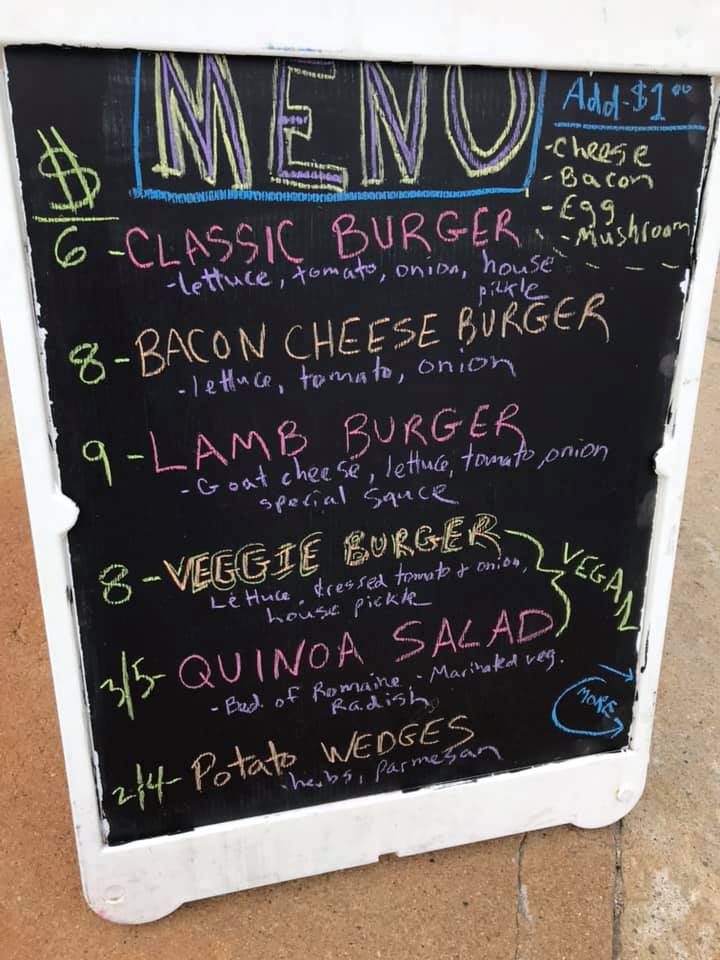 MENU
Add-$1.00
-Cheese
-Bacon
-Egg
-Mushroom
$
6-CLASSIC BURGER
-lettuce, tomato, onion, house
pickle
8-BACON CHEESE BURGER
-lettuce, tomato, onion
9-LAMB BURGER
-Goat cheese, lettuce, tomato, onion
special sauce
8-VEGGIE BURGER
Lettuce, dressed tomato & onion,
house pickle
VEGAN
3/5-QUINOA SALAD
-Bed of Romaine - Marinated veg.
Radish
MORE
2/4-Potato WEDGES
-herbs, Parmesan